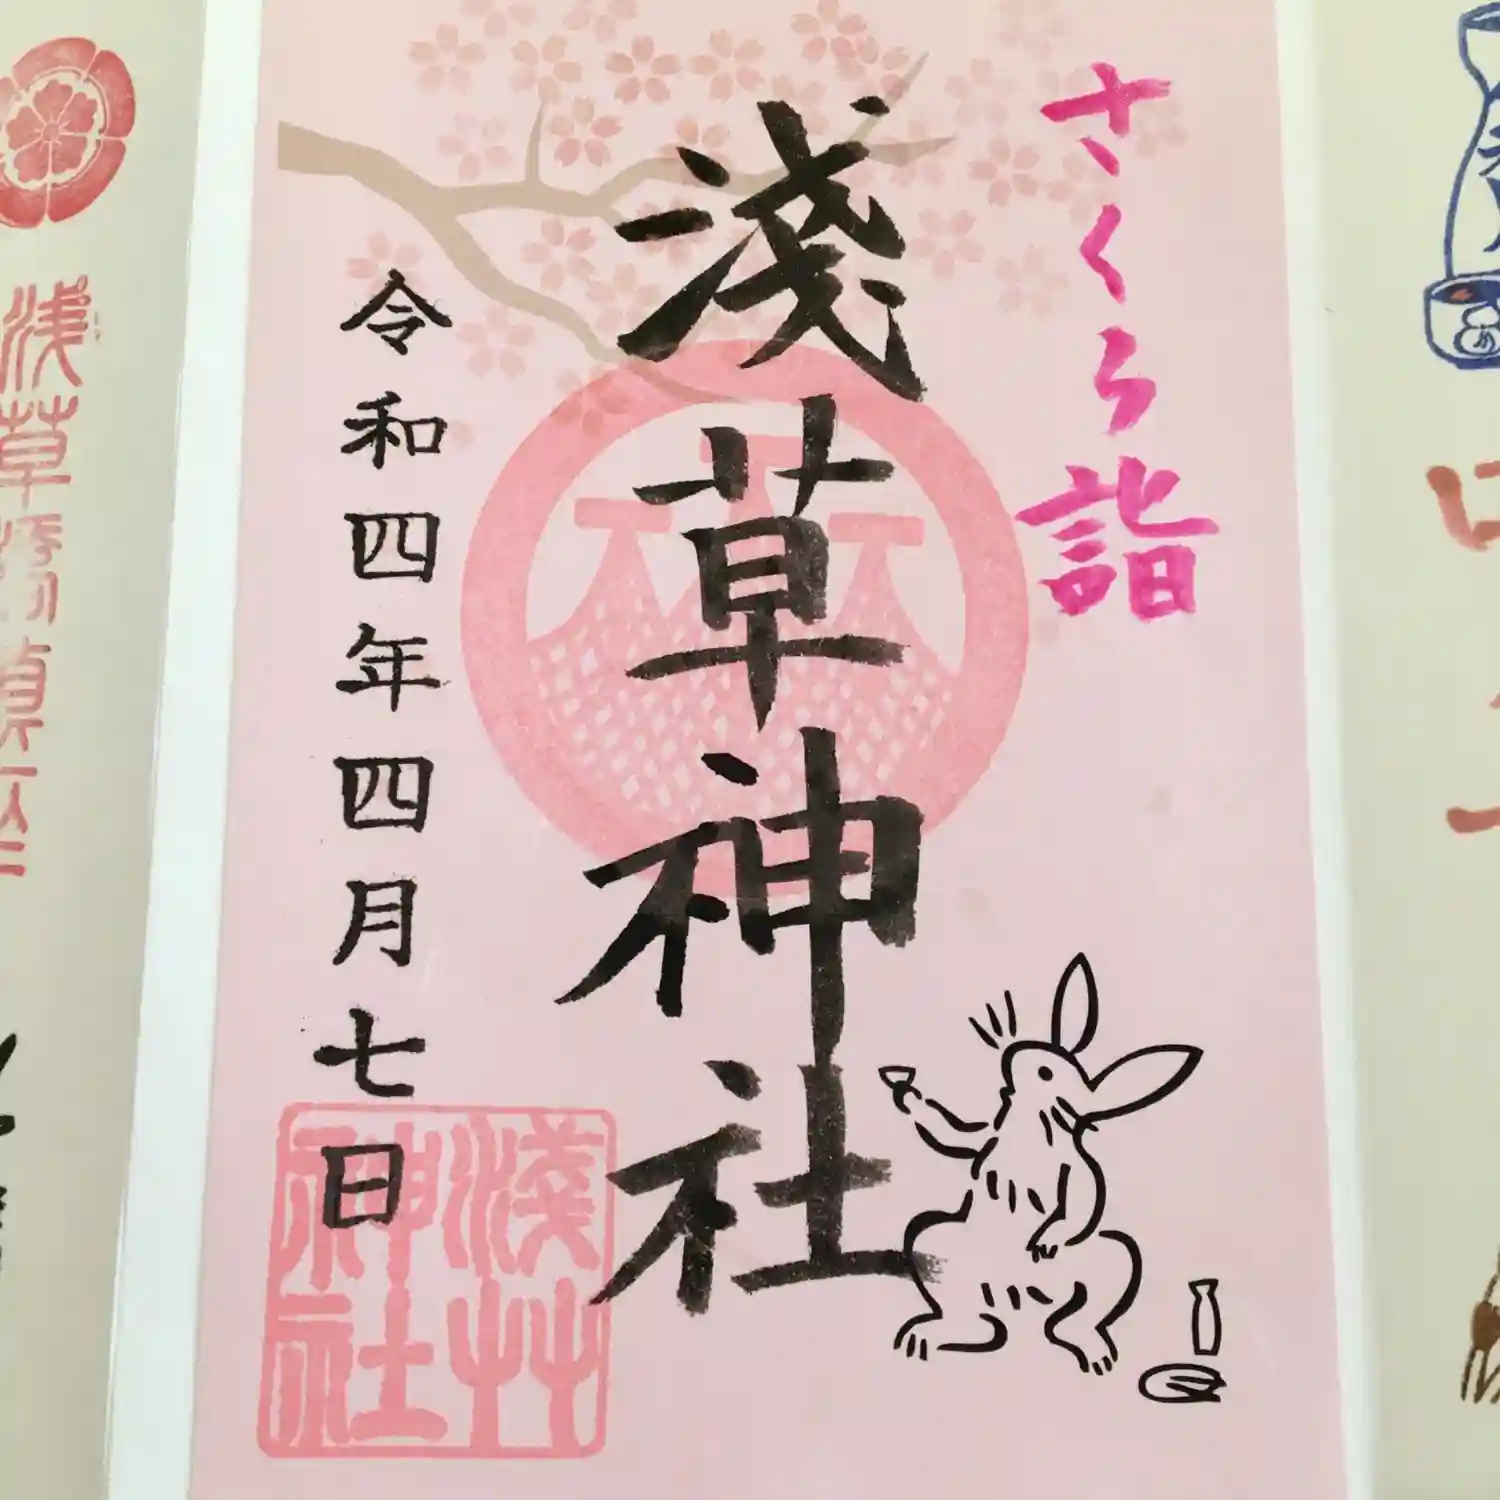 さくら詣
淺草神社
令和四年四月七日
淺艸
神社
浅草